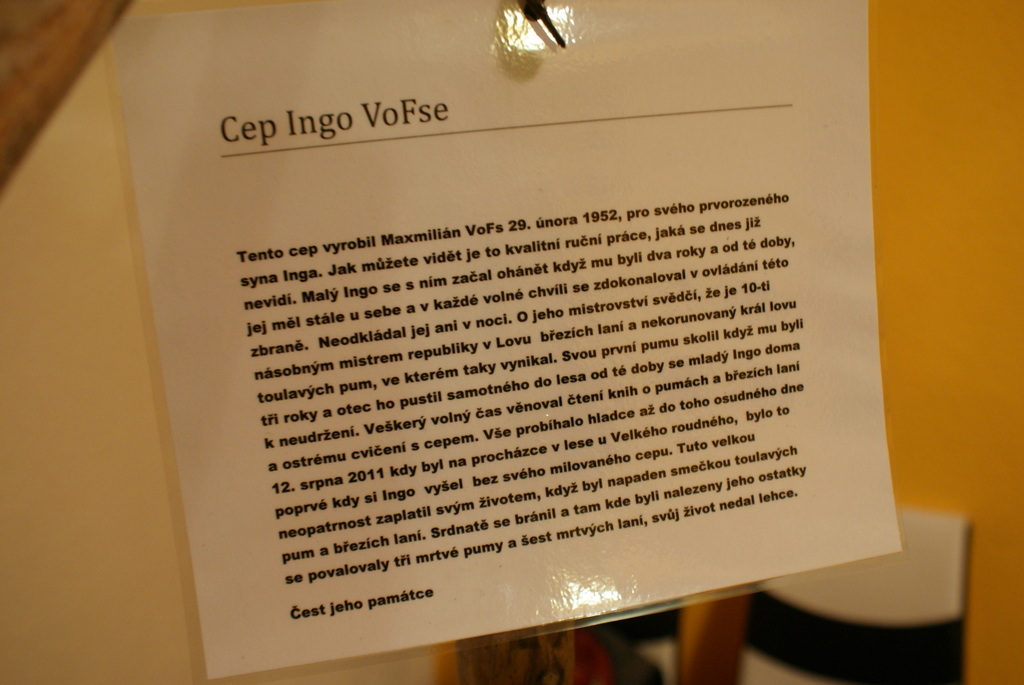 Cep Ingo VoFse
Tento cep vyrobil Maxmilián VoFs 29. února 1952, pro svého prvorozeného
syna Inga. Jak můžete vidět je to kvalitní ruční práce, jaká se dnes již
nevidí. Malý Ingo se s ním začal ohánět když mu byli dva roky a od té doby,
jej měl stále u sebe a v každé volné chvíli se zdokonaloval v ovládání této
zbraně. Neodkládal jej ani v noci. O jeho mistrovství svědčí, že je 10-ti
násobným mistrem republiky v Lovu březích laní a nekorunovaný král lovu
toulavých pum, ve kterém taky vynikal. Svou první pumu skolil když mu byli
tři roky a otec ho pustil samotného do lesa od té doby se mladý Ingo doma
k neudržení. Veškerý volný čas věnoval čtení knih o pumách a březích laní
a ostrému cvičení s cepem. Vše probíhalo hladce až do toho osudného dne
12. srpna 2011 kdy byl na procházce v lese u Velkého roudného, bylo to
poprvé kdy si Ingo vyšel bez svého milovaného cepu. Tuto velkou
neopatrnost zaplatil svým životem, když byl napaden smečkou toulavých
pum a březích laní. Srdnatě se bránil a tam kde byli nalezeny jeho ostatky
se povalovaly tři mrtvé pumy a šest mrtvých laní, svůj život nedal lehce.
Čest jeho památce